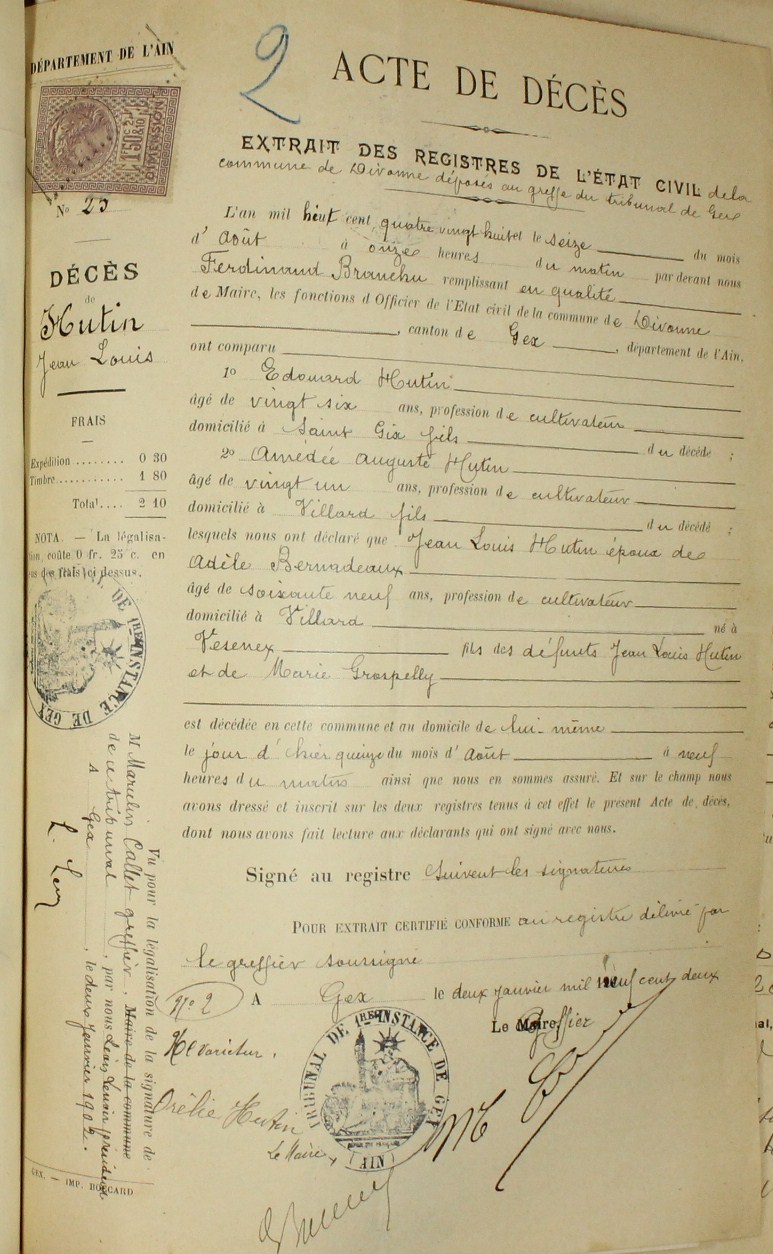 DÉPARTEMENT DE L'AIN
1F50c 2/10
DIMENSION
No 23
DÉCÈS
de
Hutin
Jean Louis
FRAIS
Expédition ........ 0 30
Timbre ........... 1 80
Total .... 2 10
NOTA. — La légalisa-
tion coûte 0 fr. 25 c. en
des frais ci dessus.
DE 1RE INSTANCE DE GEX
Vu pour la légalisation de la signature de
M Marulin Callet greffier. Maire de la commune
de ce tribunal, par nous
A Gex, le deux janvier 1902.
GEX. — IMP. BOCCARD
2
ACTE DE DÉCÈS
EXTRAIT DES REGISTRES DE L'ÉTAT CIVIL de la
commune de Divonne déposés au greffe du tribunal de Gex
L'an mil huit cent quatre vingt huit et le seize du mois
d'Août à onze heures du matin par devant nous
Ferdinand Branchu remplissant en qualité
de Maire, les fonctions d'Officier de l'Etat civil de la commune de Divonne
, canton de Gex, département de l'Ain,
ont comparu
1o Edouard Hutin
âgé de vingt six ans, profession de cultivateur
domicilié à Saint Gix fils du décédé ;
2o Amédée Auguste Hutin
âgé de vingt un ans, profession de cultivateur
domicilié à Villard fils du décédé ;
lesquels nous ont déclaré que Jean Louis Hutin époux de
Adèle Bernadeaux
âgé de soixante neuf ans, profession de cultivateur
domicilié à Villard né à
Vesenex fils des défunts Jean Louis Hutin
et de Marie Grospelly
est décédée en cette commune et au domicile de lui-même
le jour d'hier quinze du mois d'Août à neuf
heures du matin ainsi que nous en sommes assuré. Et sur le champ nous
avons dressé et inscrit sur les deux registres tenus à cet effet le présent Acte de décès,
dont nous avons fait lecture aux déclarants qui ont signé avec nous.
Signé au registre Suivent les signatures
POUR EXTRAIT CERTIFIÉ CONFORME au registre délivré par
le greffier soussigné
No 2
A Gex le deux janvier mil neuf cent deux
Le Greffier
Ne varietur.
Orélie Hutin
Le Maire,
TRIBUNAL DE 1RE INSTANCE DE GEX
(AIN)